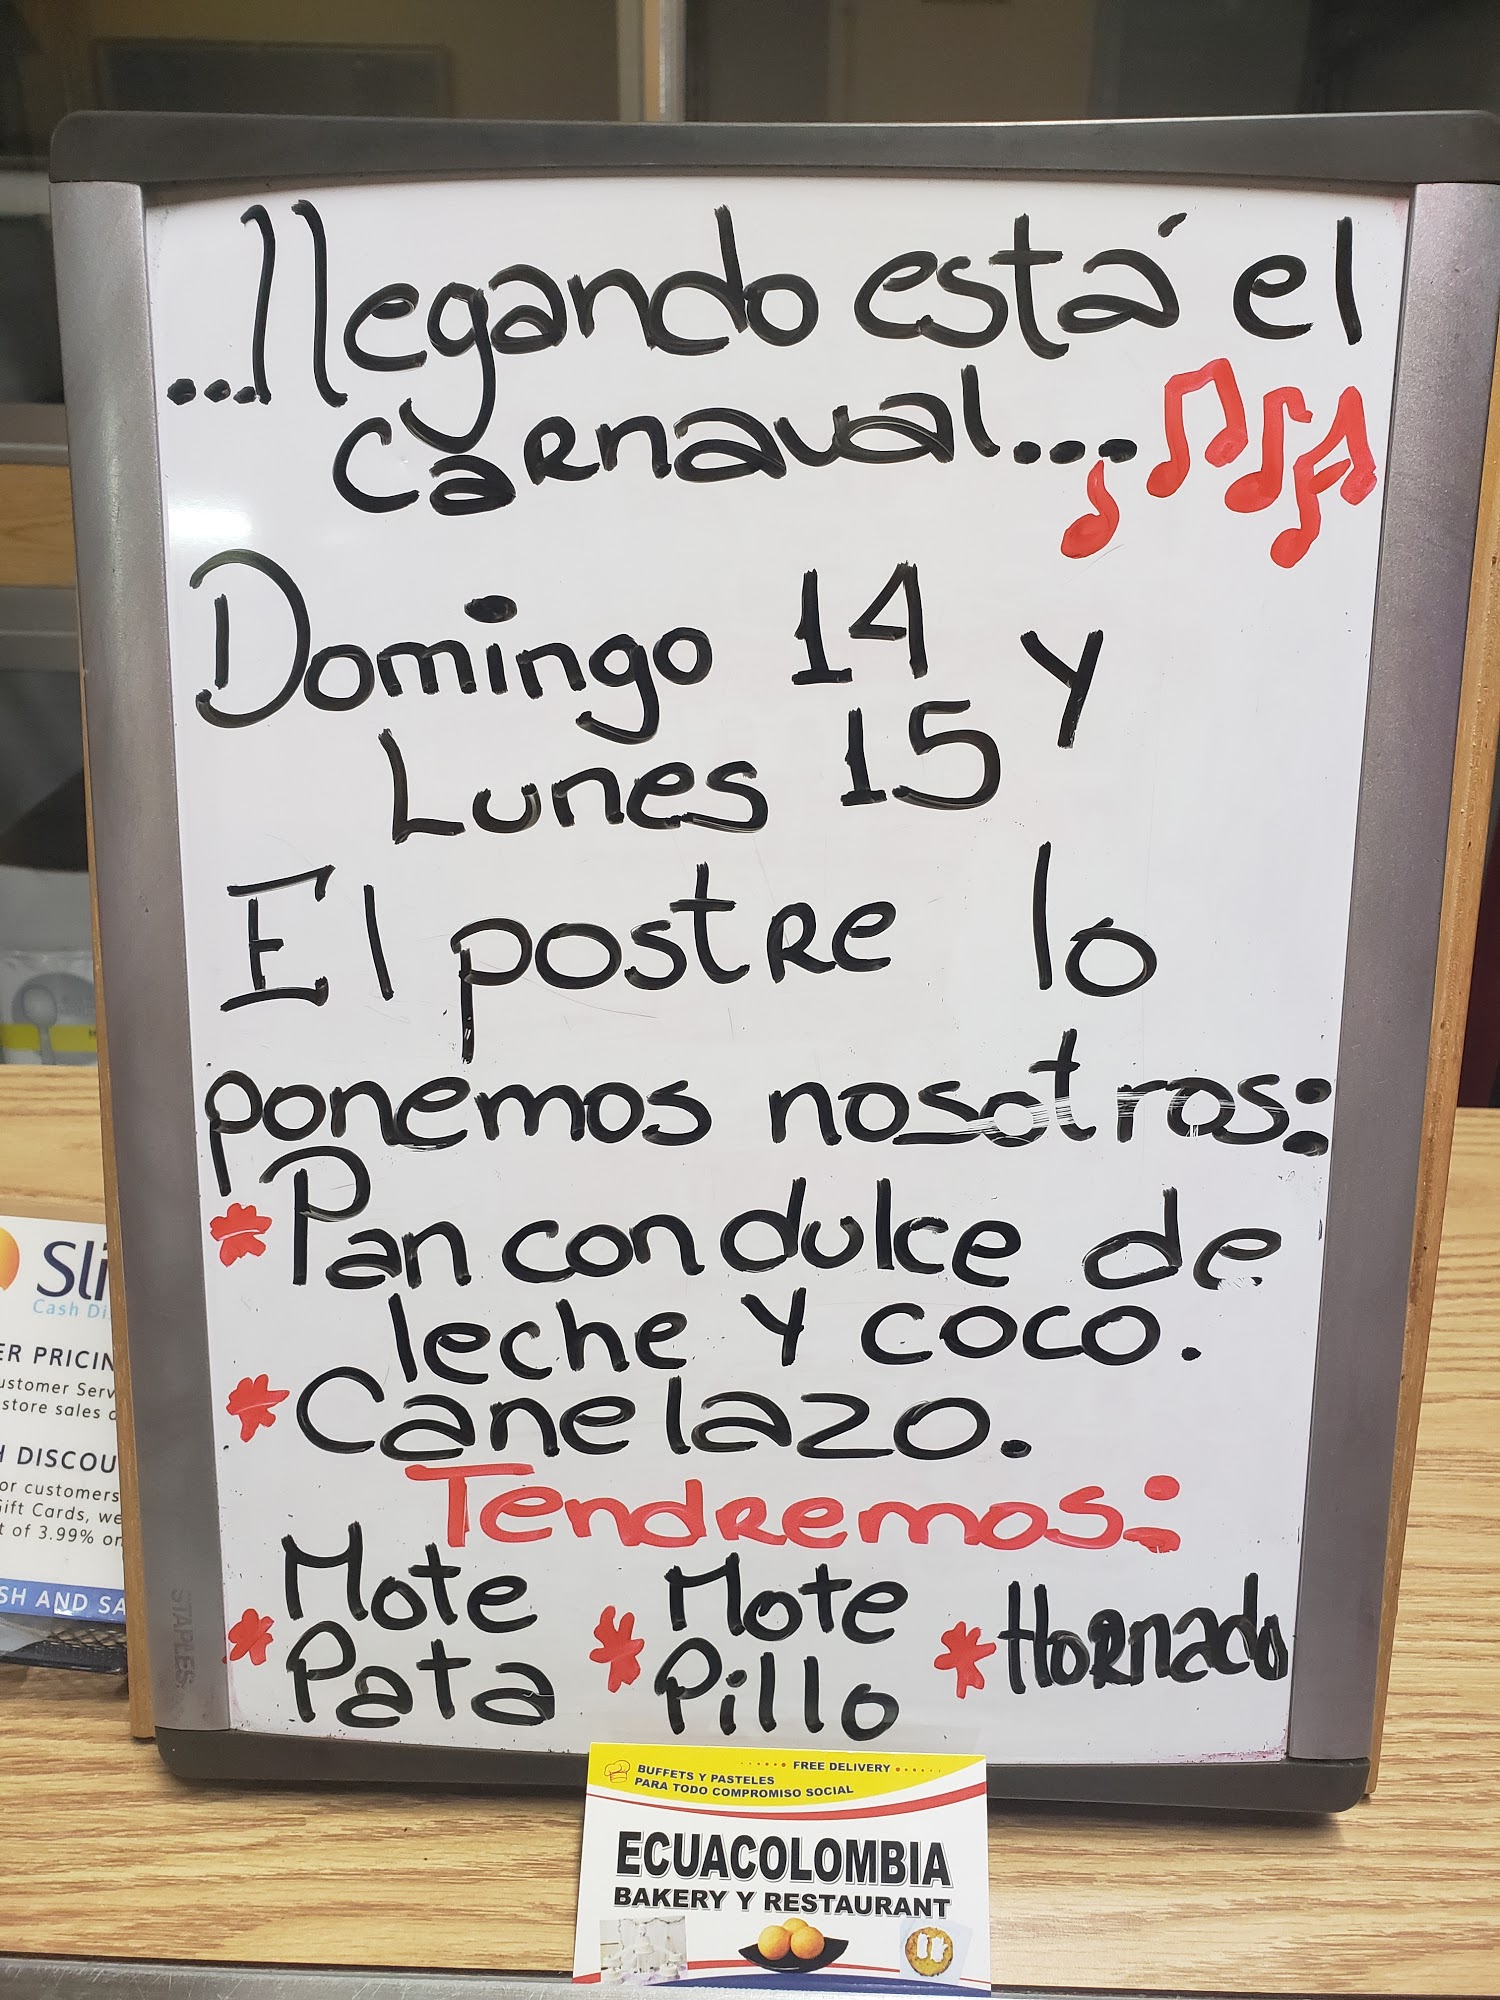 ...llegando está el
carnaval....
Domingo 14 y
Lunes 15
El postre lo
ponemos nosotros:
* Pan con dulce de
leche y coco.
* Canelazo.
Tendremos:
* Mote Pata * Mote Pillo * Hornado
STAPLES
Sli
Cash Di
ER PRICIN
ustomer Serv
store sales
DISCOU
or customers
Gift Cards, we
t of 3.99% on
SH AND SA
BUFFETS Y PASTELES
PARA TODO COMPROMISO SOCIAL
FREE DELIVERY
ECUACOLOMBIA
BAKERY Y RESTAURANT